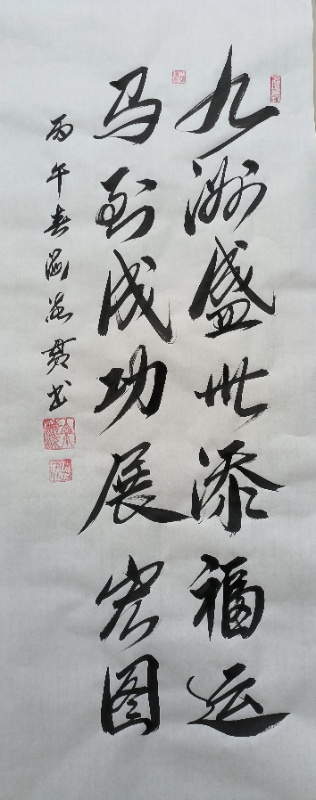 九洲盛世添福运
马到成功展宏图
丙午春
书